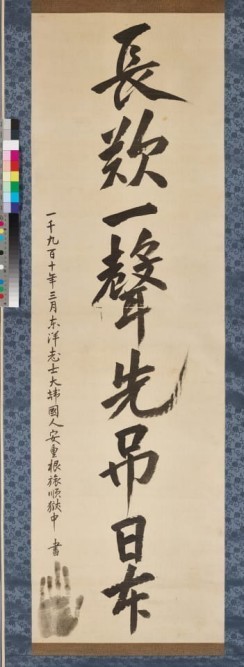 長歎一聲先吊日本
一千九百十年三月東洋志士大韓國人安重根旅順獄中 書